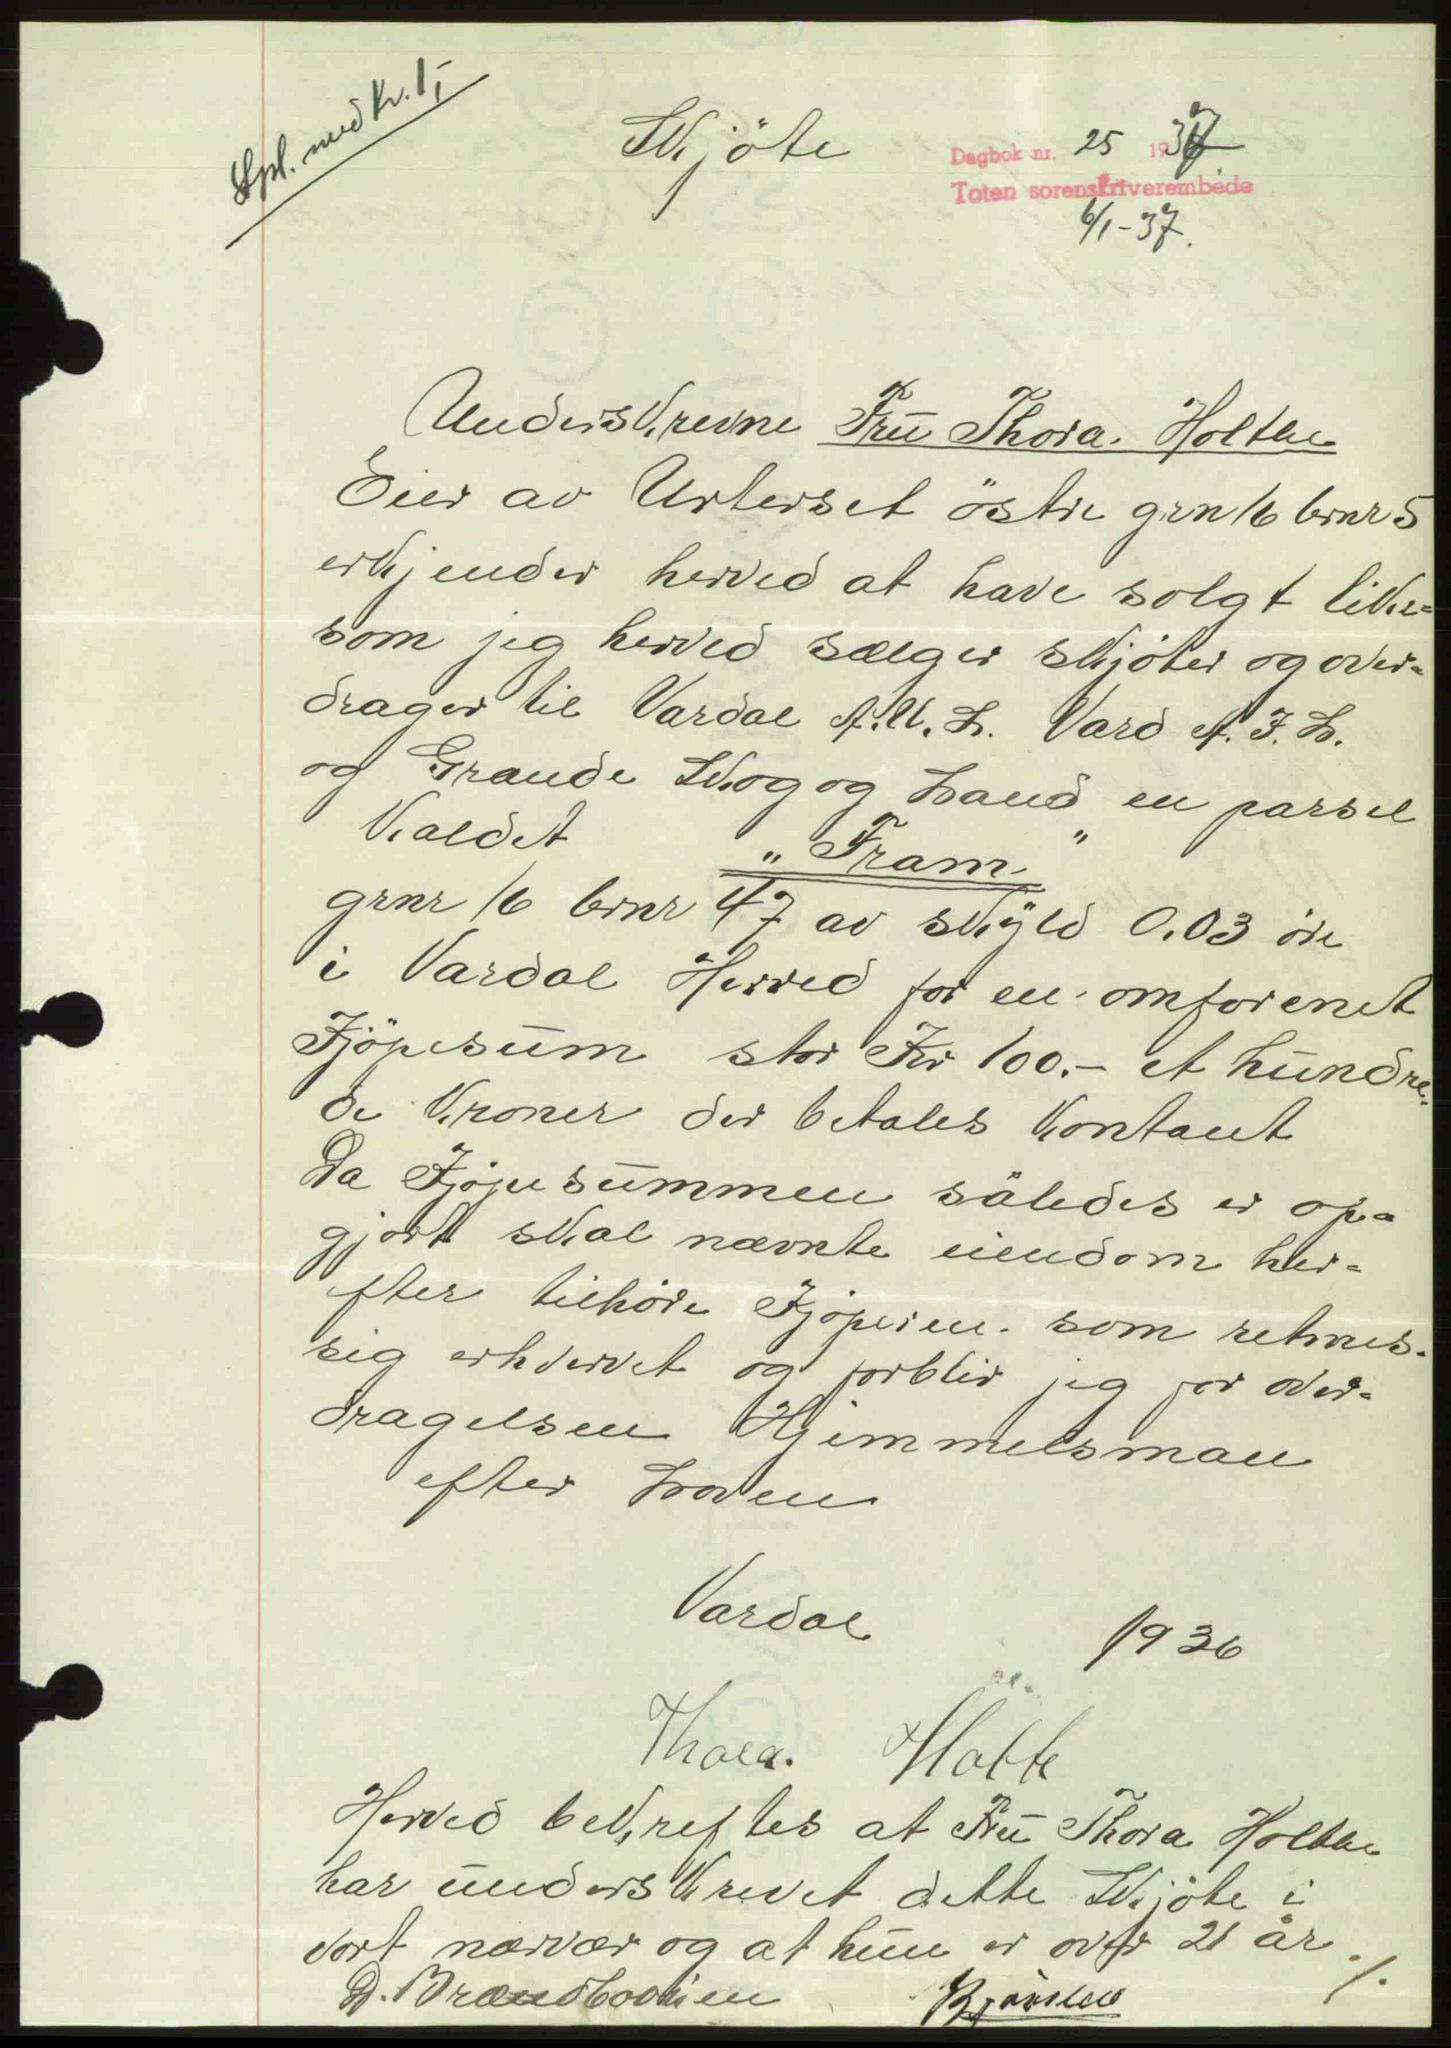 Spl. med Kr. 1,-
Skjöte
Dagbok nr. 25 1937
Toten sorenskriverembede
6/1-37.
Underskrevne Frü Thora. Holthe
Eier av Urterset östre grn 16 brnr 5
erkjender herved at have solgt like=
som jeg herved sælger skjöter og over=
drager til Vardal A.U.L. Vard A.I.L.
og Grande Skog og Land en parsel
kaldet „Fram"
grnr 16 brnr 47 av skyld 0.03 öre
i Vardal Herred for en omforenet
Kjöpesüm stor Kr 100.- et hündre
de kroner der betales kontant
Da Kjöpesümmen således er op=
gjort skal nævnte eiendom her=
efter tilhöre Kjöperen som retmes=
sig erhvervet og forblir jeg for over=
dragelsen Hjemmelsman
efter Loven
Vardal 1936
Thora. Holthe
Herved bekreftes at Frü Thora Holthe
har ünderskrevet dette Skjöte i
vort nærvær og at hün er over 21 år
D. Brændbakken
./.